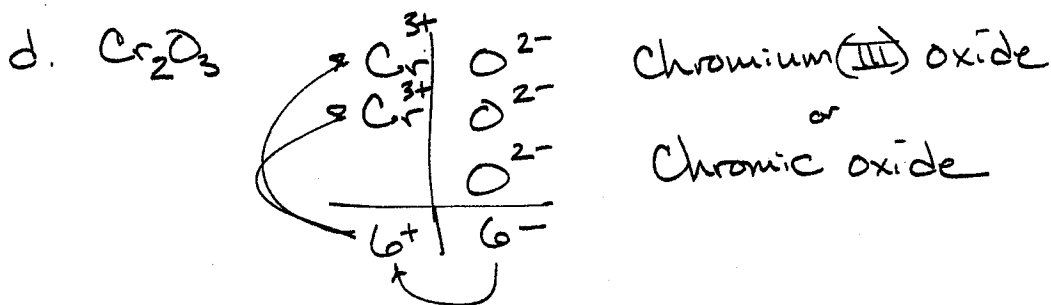 d. Cr₂O₃
Cr³⁺ O²⁻
Cr³⁺ O²⁻
O²⁻
6+ 6-
Chromium(III) oxide
or
Chromic oxide